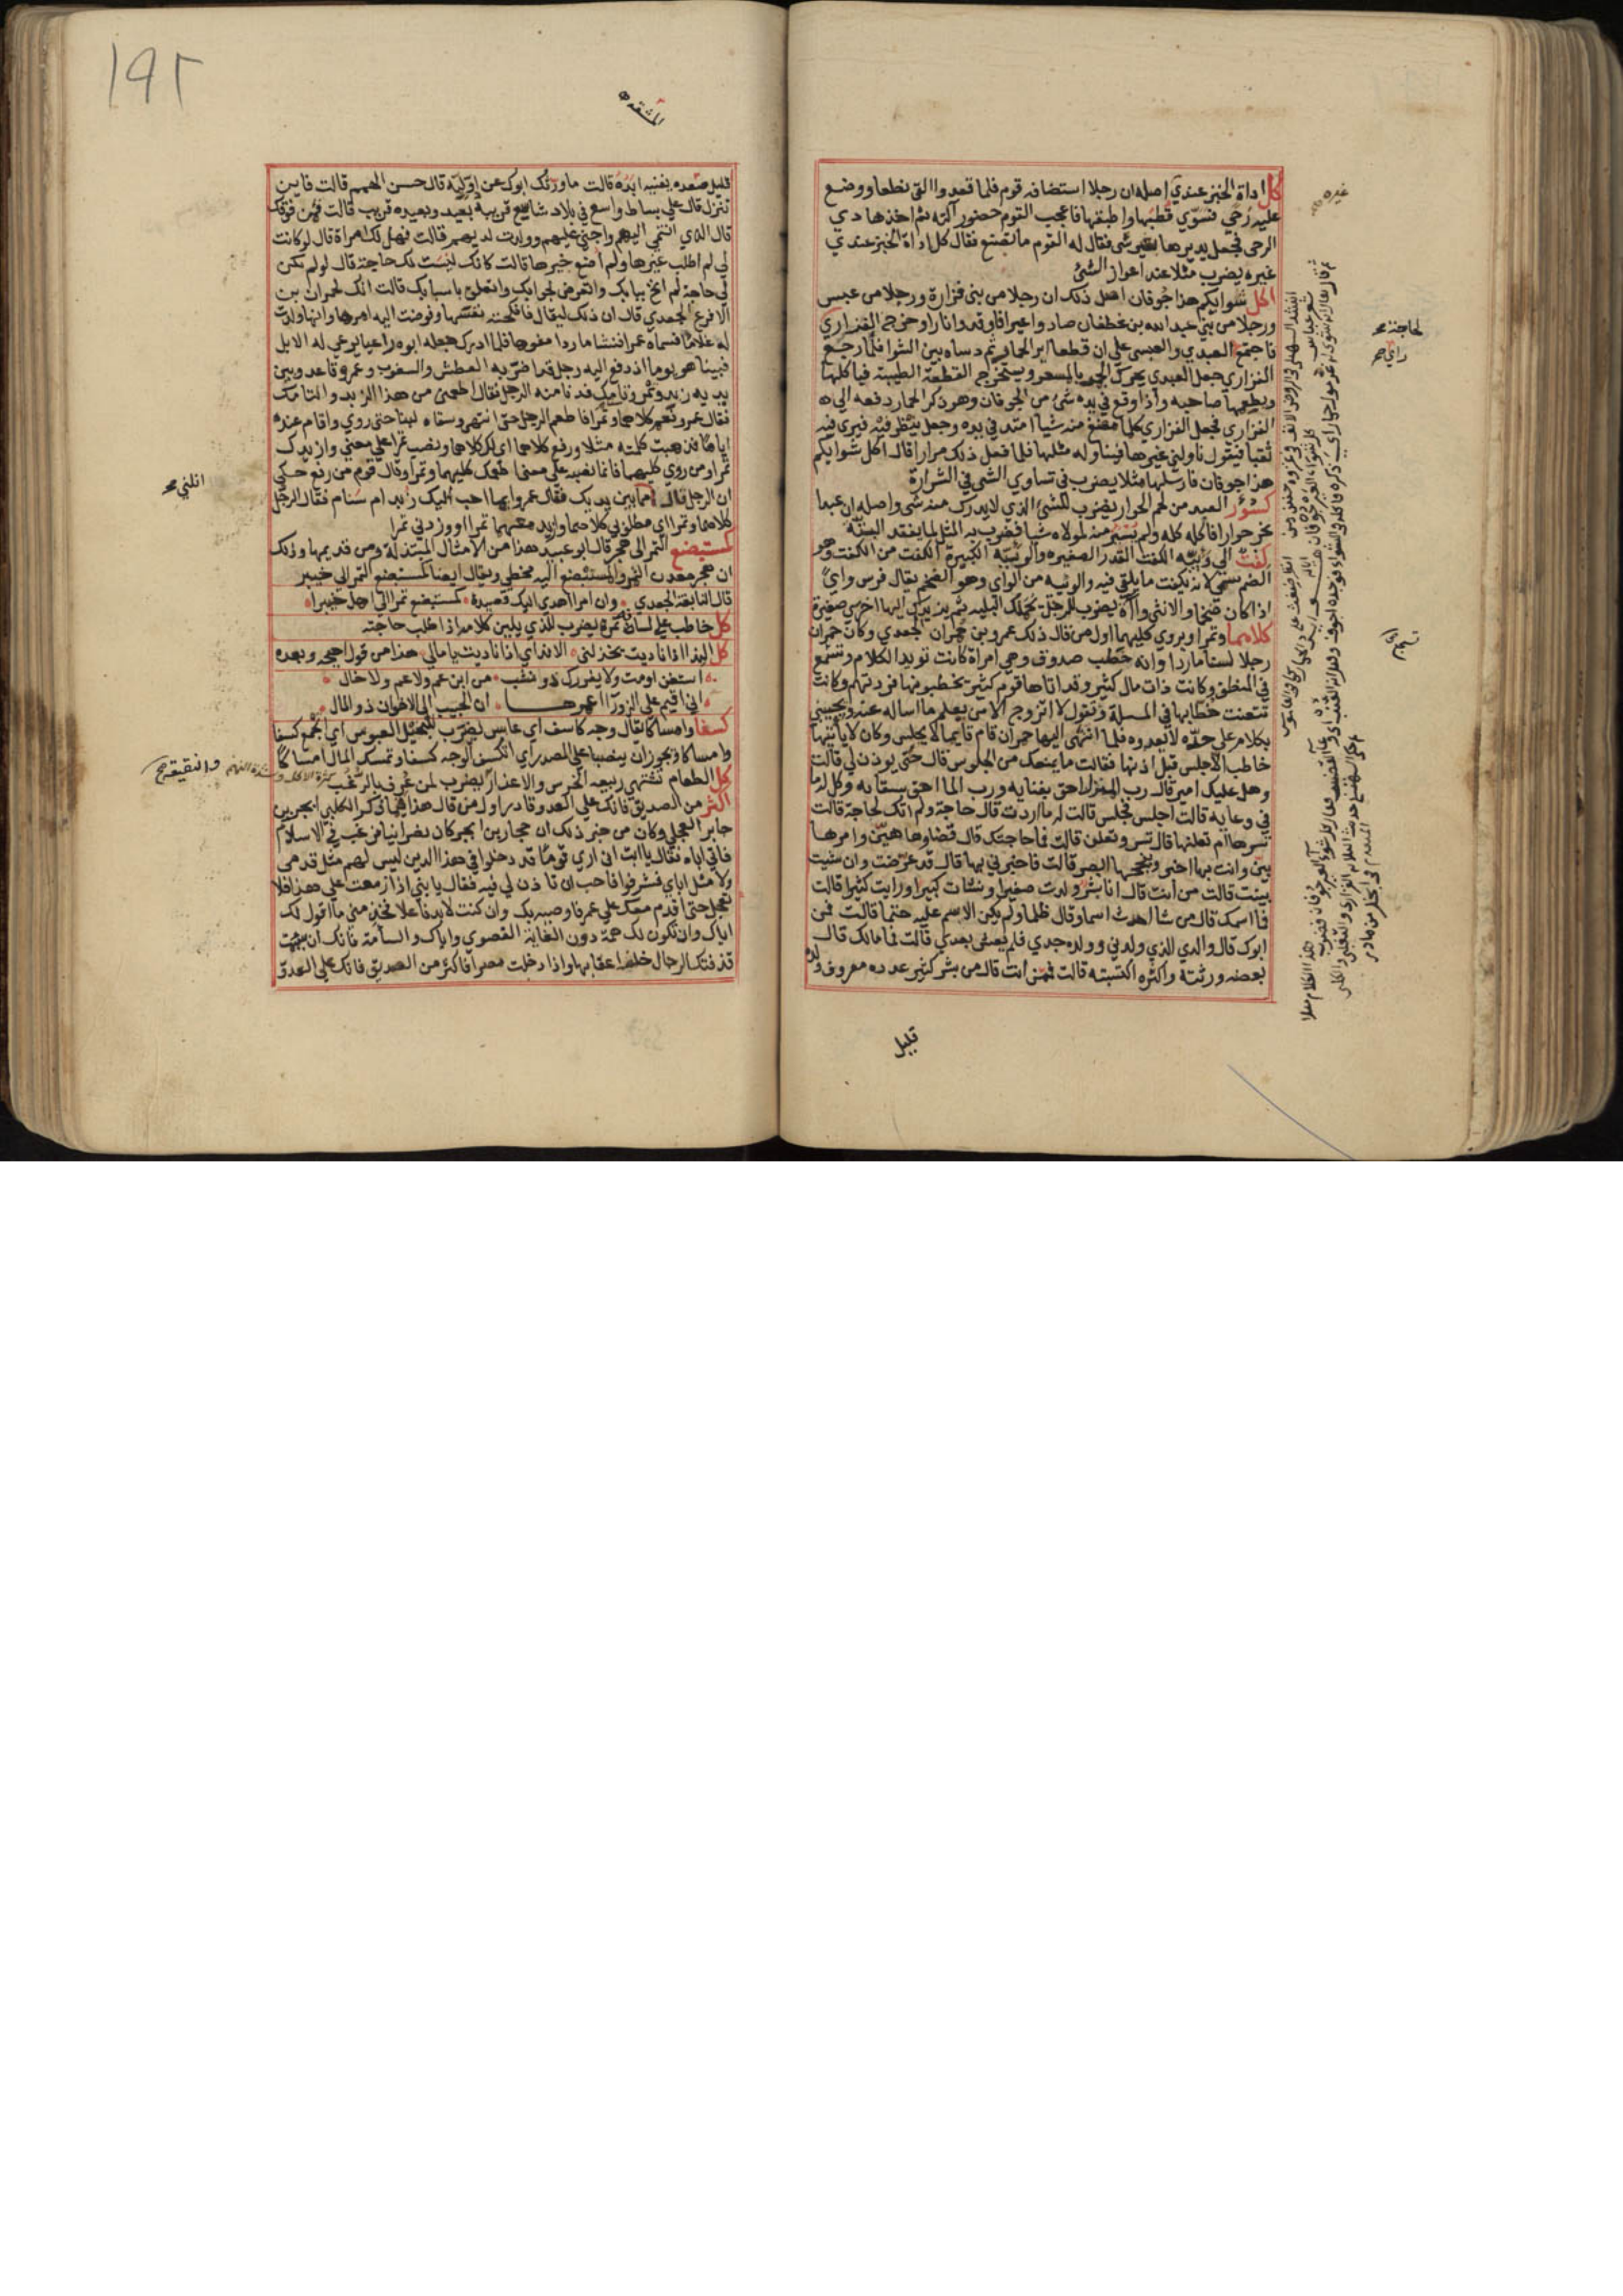 كل اداة الخبز عندي اصله ان رجلا استضافه قوم فلما قعدوا القى نطعا ووضع
عليه رحي فسوي قطبها واطبقها فاعجب القوم حضور آلته ثم اخذ هادي
الرحى فجعل يديرها بغير شى فقال له القوم ما تصنع فقال كل اداة الخبز عندي
غيره يضرب مثلا عند اعواز الشئ
اكل شوايكم هذا جوفان اصل ذلك ان رجلا من بنى فزارة ورجلا من عبس
ورجلا من بني عبد الله بن غطفان صادوا عيرا فاوقدوا نارا وخرج الفزاري
فاجتمع العبدي والعبسى على ان قطعا اير الحمار ثم دساه بين الشوا فلما رجع
الفزاري جعل العبدي يحرك الجمر بالمسعر ويستخرج القطعة الطيبة فياكلها
ويطعمها صاحبه واذا وقع في يده شئ من الجوفان وهو ذكر الحمار دفعه الى
الفزاري فجعل الفزاري كلما مضغ منه شيا امتد في يده وجعل ينظر فيه فيرى فيه
ثقبا فيقول ناولني غيرها فيناوله مثلها فلما فعل ذلك مرارا قال اكل شوايكم
هذا جوفان فارسلها مثلا يضرب في تساوي الشى في الشرارة
كسؤر العبد من لحم الحوار يضرب للشئ الذي لا يدرك منه شى واصله ان عبدا
نحر حوارا فاكله كله ولم يسئر منه لمولاه شيا فضرب به المثل لما يفقد البتة
كفت الى وئيه الكفت القدر الصغيره والوئيه الكبيرة الكفت من الكفت وهو
الضم سمي لانه يكفت ما يلقي فيه والوئيه من الواي وهو الضخم يقال فرس واي
اذا كان ضخما والانثى واآة يضرب للرجل يحملك البليه ثم يزيدك اليها اخرى صغيرة
كلاهما وتمرا ويروي كليهما اول من قال ذلك عمرو بن حمران الجعدي وكان حمران
رجلا لسنا ماردا وانه خطب صدوف وهي امراة كانت تويد الكلام وتشجع
في المنطق وكانت ذات مال كثير وقد اتاها قوم كثير يخطبونها فردتهم وكانت
تتعنت خطابها في المسلة وتقول لا اتزوج الا من يعلم ما اساله عنه ويجيبني
بكلام على حده لا يعدوه فلما انتهى اليها حمران قام قايما لا يجلس وكان لا ياتيها
خاطب الا جلس قبل اذنها فقالت ما يمنعك من الجلوس قال حتى يوذن لي قالت
وهل عليك امير قال رب المنزل احق بفنايه ورب الما احق بسقايه وكل له ما
في وعايه قالت اجلس فجلس قالت له ما اردت قال حاجة ولم اتك لحاجة قالت
تسرها ام تعلنها قال تسر وتعلن قالت فما حاجتك قال قضاوها هين وامرها
بين وانت بها اخبر وبنجحها ابصر قالت فاخبرني بها قال قد عرضت وان شيت
بينت قالت من انت قال انا بشر ولدت صغيرا ونشات كبيرا ورايت كثيرا قالت
فما اسمك قال من شا احدث اسما وقال ظلما ولم يكن الاسم عليه حتما قالت فمن
ابوك قال والدي الذي ولدني ووالده جدي فلم يعش بعدي قالت فما مالك قال
بعضه ورثته واكثره اكتسبته قالت فممن انت قال من بشر كثير عدده معروف ولده
قليل
غيره
لحاجة
١٩٢
المشقه
قليل صعده يفنيه ابده قالت ما ورثك ابوك عن اوليه قال حسن الهمم قالت فاين
تنزل قال علي بساط واسع في بلاد شاسع قريبه بعيد وبعيده قريب قالت فمن قومك
قال الذي انتمي اليهم واجنى عليهم وولدت لديهم قالت فهل لك امراة قال لو كانت
لي لم اطلب غيرها ولم اضع خيرها قالت كانك ليست لك حاجة قال لو لم تكن
لي حاجة لم انخ ببابك واتعرض لجوابك واتعلق باسبابك قالت انك لحمران بن
الاقرع الجعدي قال ان ذلك ليقال فانكحته نفسها وفوضت اليه امرها وانها ولدت
له غلاما فسماه عمرا فنشا ماردا مفوها فلما ادرك جعله ابوه راعيا يرعى له الابل
فبينا هو يوما اذ دفع اليه رجل قد اضر به العطش والسغوب وعمرو قاعد وبين
يديه زبد وتمر وتامك فدنا منه الرجل فقال اطعمني من هذا الزبد والتامك
فقال عمرو نعم كلاهما وتمرا فاطعم الرجل حتى انتهى وسقاه لبنا حتى روي واقام عنده
اياما فذهبت كلمته مثلا ورفع كلاهما اي لك كلاهما ونصب تمرا علي معنى وازيدك
تمرا ومن روي كليهما فانما نصبه على معنى اطعمك كليهما وتمرا وقال قوم من رفع حكى
ان الرجل قال انلني مما بين يديك فقال عمرو ايما احب اليك زبد ام سنام فقال الرجل
كلاهما وتمرا اي مطلوبي كلاهما وازيد معهما تمرا او وزدني تمرا
كمستبضع التمر الى هجر قال ابو عبيد هذا من الامثال المبتذلة ومن قديمها وذلك
ان هجر معدن التمر والمستبضع اليه مخطي ويقال ايضا كمستبضع التمر الى خيبر
قال النابغة الجعدي وان امرا اهدى اليك قصيدة كمستبضع تمرا الى اهل خيبرا
كل خاطب علي لسانه تمرة يضرب للذي يلين كلامه اذا طلب حاجته
كل الندا اذا ناديت يخذلني الا نداي اذا ناديت يا مالي هذا من قول احيحه وبعده
استغن او مت ولا يغررك ذو نشب من ابن عم ولا عم ولا خال
اني اقيم على الزورا اعمرها ان الحبيب الى الاخوان ذو المال
كسفا وامساكا يقال وجه كاسف اي عابس يضرب للبخيل العبوس اي اتجمع كسفا
وامساكا ويجوز ان ينصبا على المصدر اي اتكسف الوجه كسفا وتمسك المال امساكا
كل الطعام تشتهي ربيعه الخرس والاعذار والنقيعة يضرب لمن عرف بالرغب كثرة الاكل وشدة النهم
اكثر من الصديق فانك علي العدو قادر اول من قال هذا فيما ذكر الكلبي ابجر بن
جابر العجلي وكان من خبر ذلك ان حجار بن ابجر كان نصرانيا فرغب في الاسلام
فاتى اباه فقال يا ابت اني اري قوما قد دخلوا في هذا الدين ليس لهم مثل قدمى
ولا مثل اباي فشرفوا فاحب ان تاذن لي فيه فقال يا بني اذا ازمعت علي هذا فلا
تعجل حتى اقدم معك علي عمر فاوصيه بك وان كنت لابد فاعلا فخذ مني ما اقول لك
اياك وان تكون لك همة دون الغاية القصوي واياك والسآمة فانك ان سيمت
قذفتك الرجال خلف اعقابها واذا دخلت مصرا فاكثر من الصديق فانك على العدو